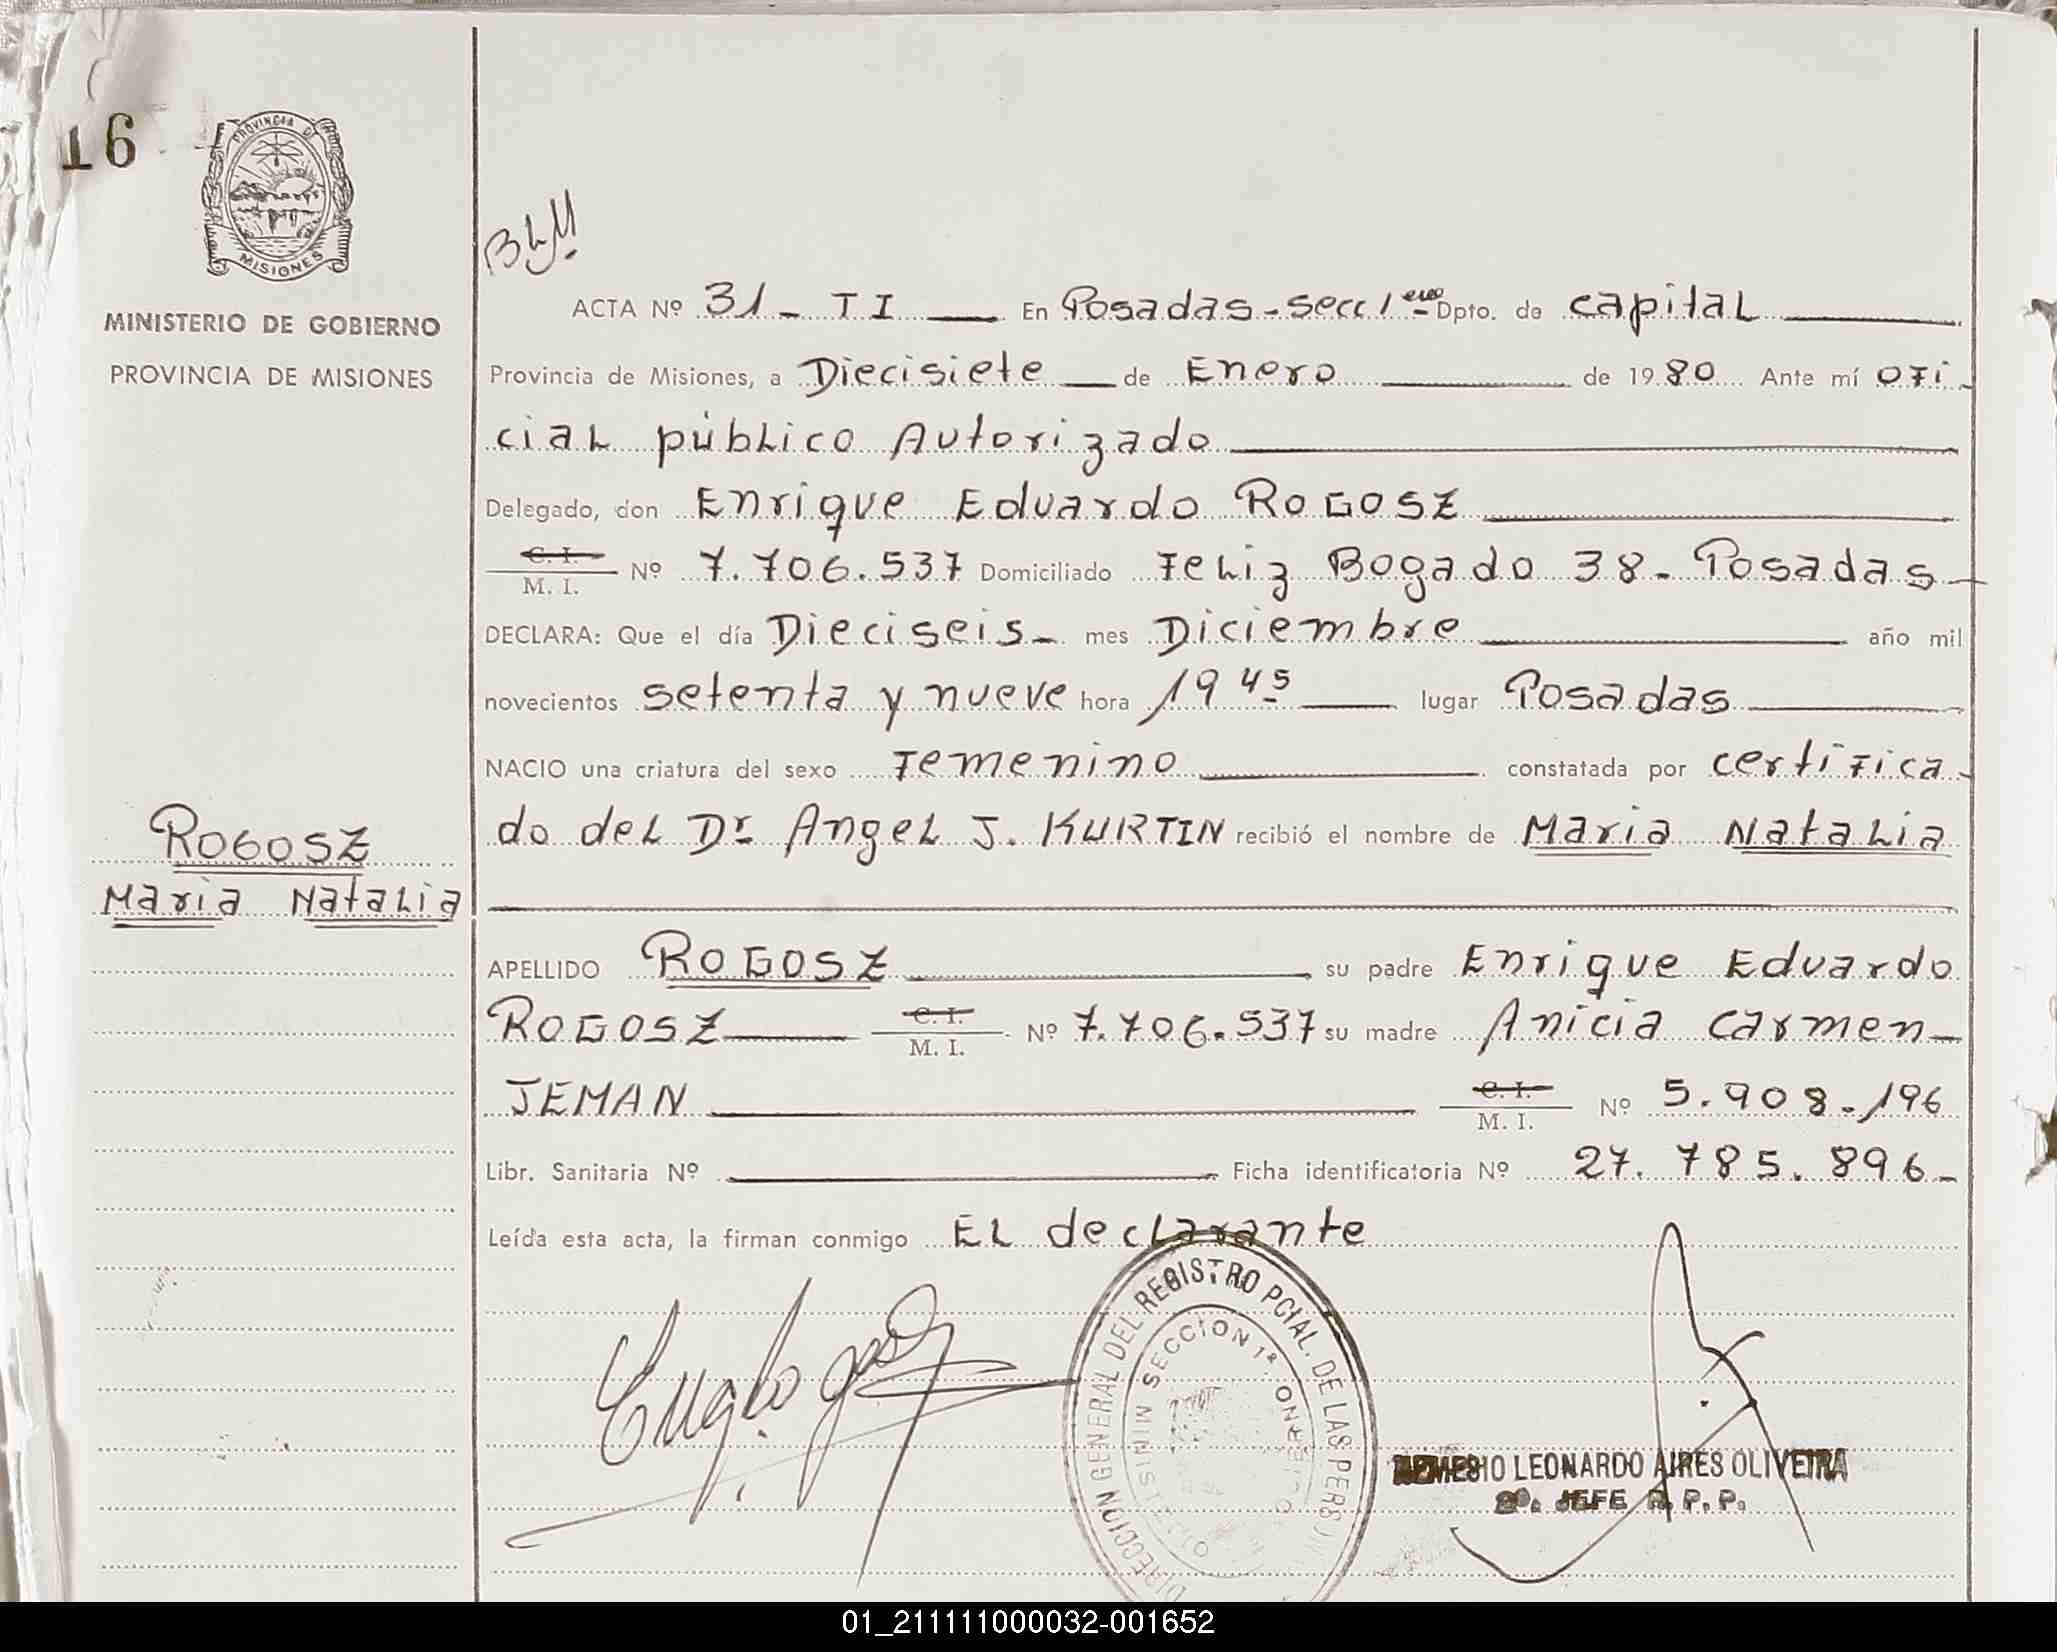 16
PROVINCIA DE
MISIONES
MINISTERIO DE GOBIERNO
PROVINCIA DE MISIONES
ROGOSZ
Maria Natalia
ACTA Nº 31 - T I En Posadas - secc 1era Dpto. de capital
Provincia de Misiones, a Diecisiete de Enero de 1980 Ante mí ofi
cial público Autorizado
Delegado, don Enrique Eduardo ROGOSZ
C. I.
M. I. Nº 7.706.537 Domiciliado Feliz Bogado 38 - Posadas
DECLARA: Que el día Dieciseis - mes Diciembre año mil
novecientos setenta y nueve hora 19 45 lugar Posadas
NACIO una criatura del sexo Femenino constatada por certifica
do del Dr Angel J. KURTIN recibió el nombre de Maria Natalia
APELLIDO ROGOSZ su padre Enrique Eduardo
ROGOSZ C. I. M. I. Nº 7.706.537 su madre Anicia Carmen
JEMAN C. I. M. I. Nº 5.908.196
Libr. Sanitaria Nº Ficha identificatoria Nº 27.785.896 -
Leída esta acta, la firman conmigo EL declarante
DIRECCION GENERAL DEL REGISTRO PCIAL. DE LAS PERSON
SECCION 1ª
NEMESIO LEONARDO AIRES OLIVEIRA
2º. JEFE R. P. P.
01_211111000032-001652